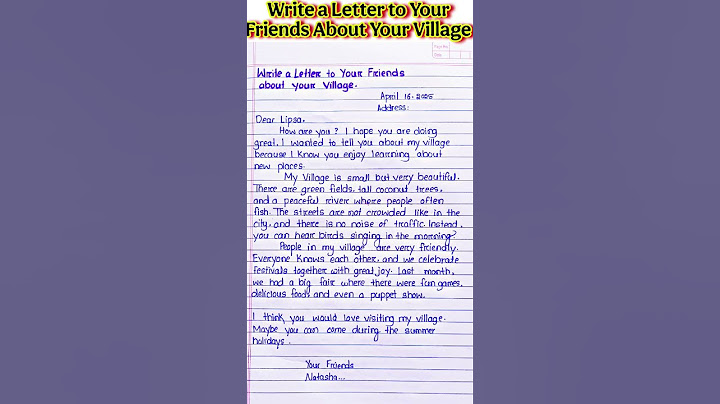 Write a Letter to Your
Friends About Your Village
Write a Letter to Your Friends
about your Village.
April 16, 2025
Address:
Dear Lipsa,
How are you? I hope you are doing
great, I wanted to tell you about my village
because I know you enjoy learning about
new places.
My Village is small but very beautiful.
There are green fields, tall coconut trees,
and a peaceful river where people often
fish. The streets are not crowded like in the
city, and there is no noise of traffic. Instead,
you can hear birds singing in the morning?
People in my village are very friendly.
Everyone knows each other, and we celebrate
festivals together with great joy. Last month,
we had a big fair where there were fun games,
delicious foods and even a puppet show.
I think you would love visiting my village.
Maybe you can come during the summer
holidays.
Your Friends
Natasha...